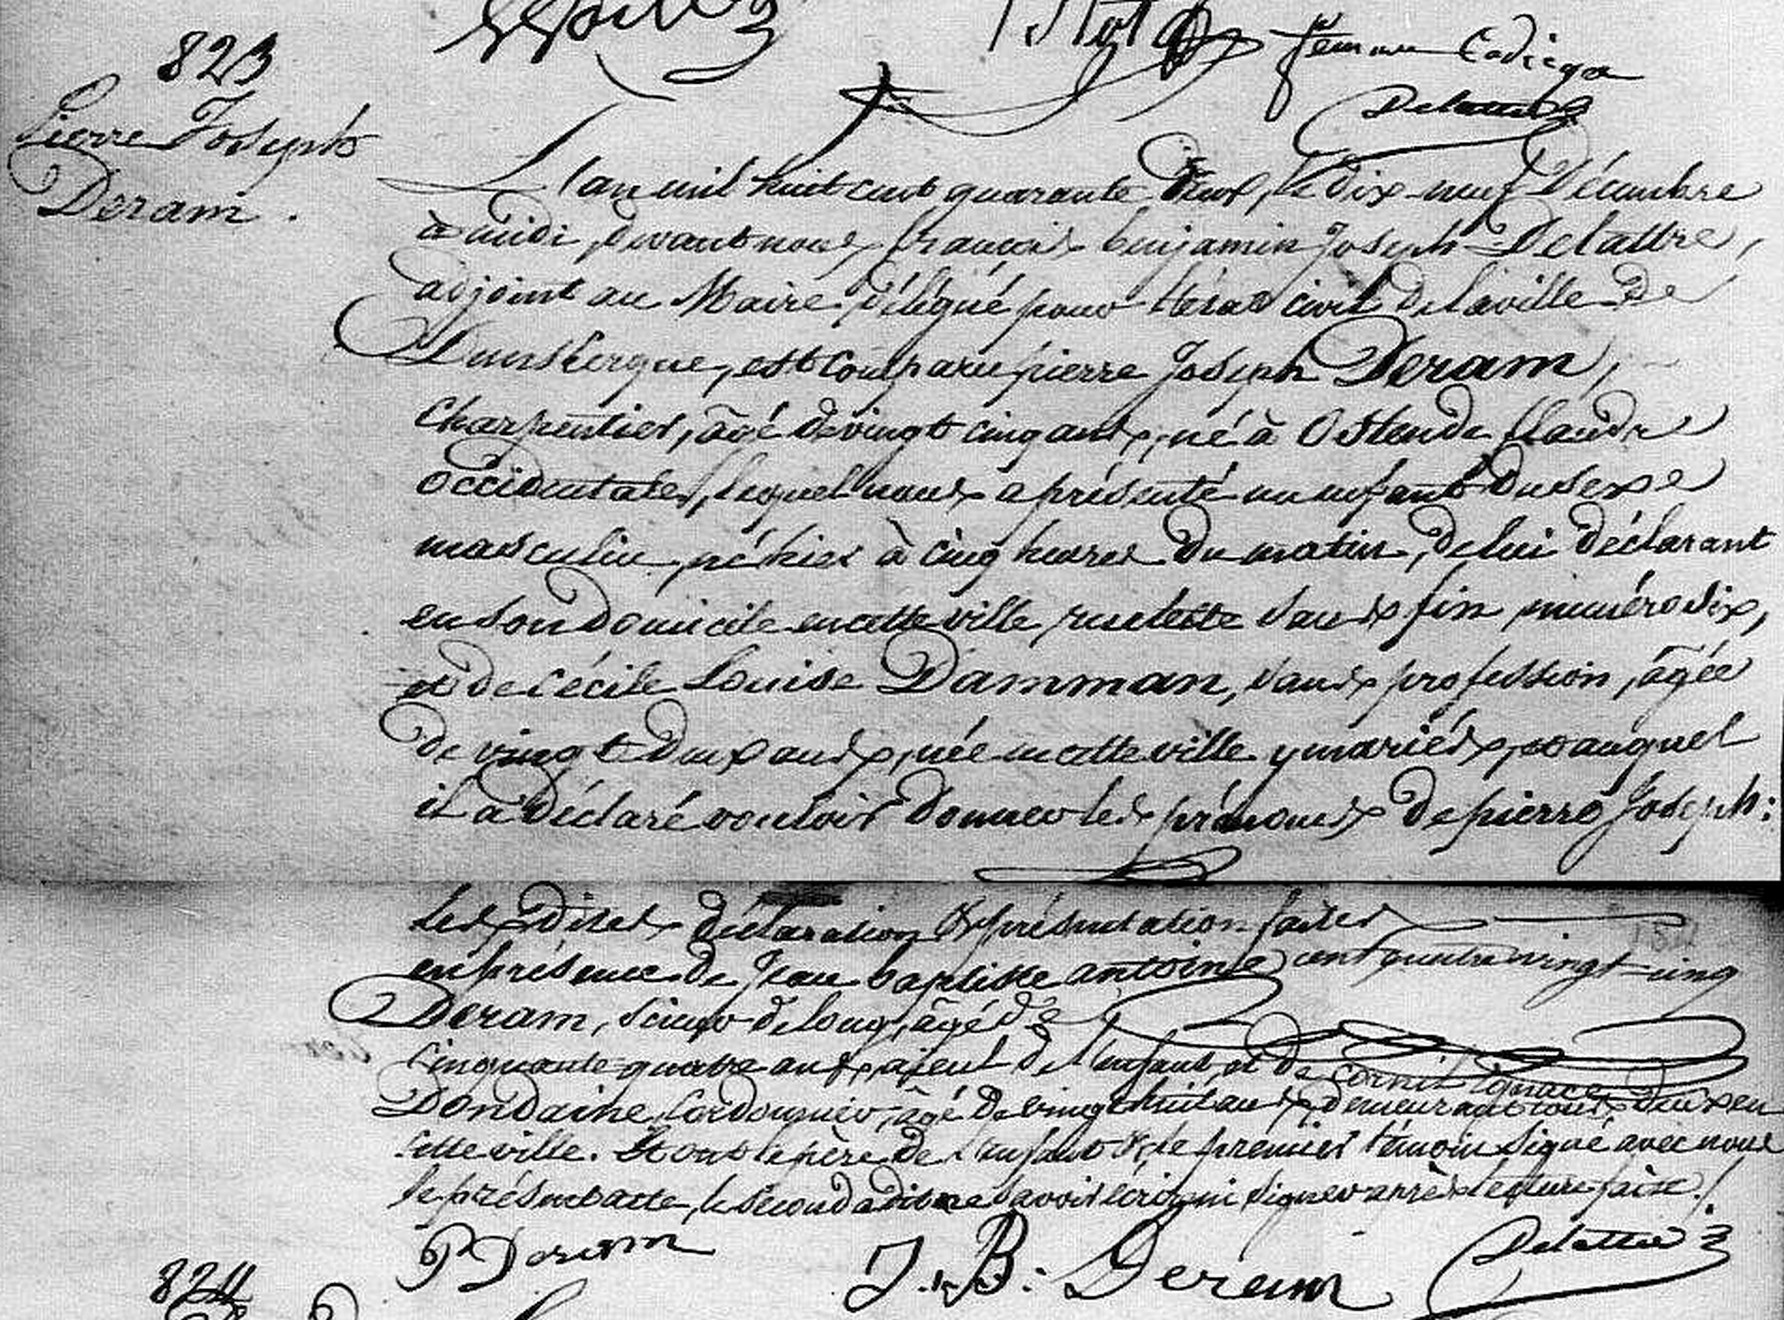 823
Pierre Joseph
Deram.
Delattre
L'an mil huit cent quarante deux, le dix-neuf Décembre
à midi, devant nous françois benjamin Joseph Delattre,
adjoint au Maire délégué pour l'état civil de la ville de
Dunkerque, est comparu pierre Joseph Deram,
Charpentier, âgé de vingt cinq ans, né à Ostende flandre
occidentale, lequel nous a présenté un enfant du sexe
masculin, né hier à cinq heures du matin, de lui déclarant
en son domicile en cette ville, rue sans fin numéro dix,
et de Cécile Louise Damman, sans profession, âgée
de vingt deux ans, née en cette ville y mariés, et auquel
il a déclaré vouloir donner les prénoms de pierre Joseph:
Les dites déclaration & présentation faites
en présence de Jean baptiste antoine cent quatre vingt-cinq
Deram, scieur de long, âgé de
cinquante quatre ans, aïeul de l'enfant, et de cornil ignace
Dondaine, Cordonnier, âgé de vingt huit ans, demeurant tous deux en
cette ville. Et ont le père de l'enfant & le premier témoin signé avec nous
le présent acte, le second a dit ne savoir écrire ni signer après lecture faite./
P Deram J. B: Deram Delattre
824